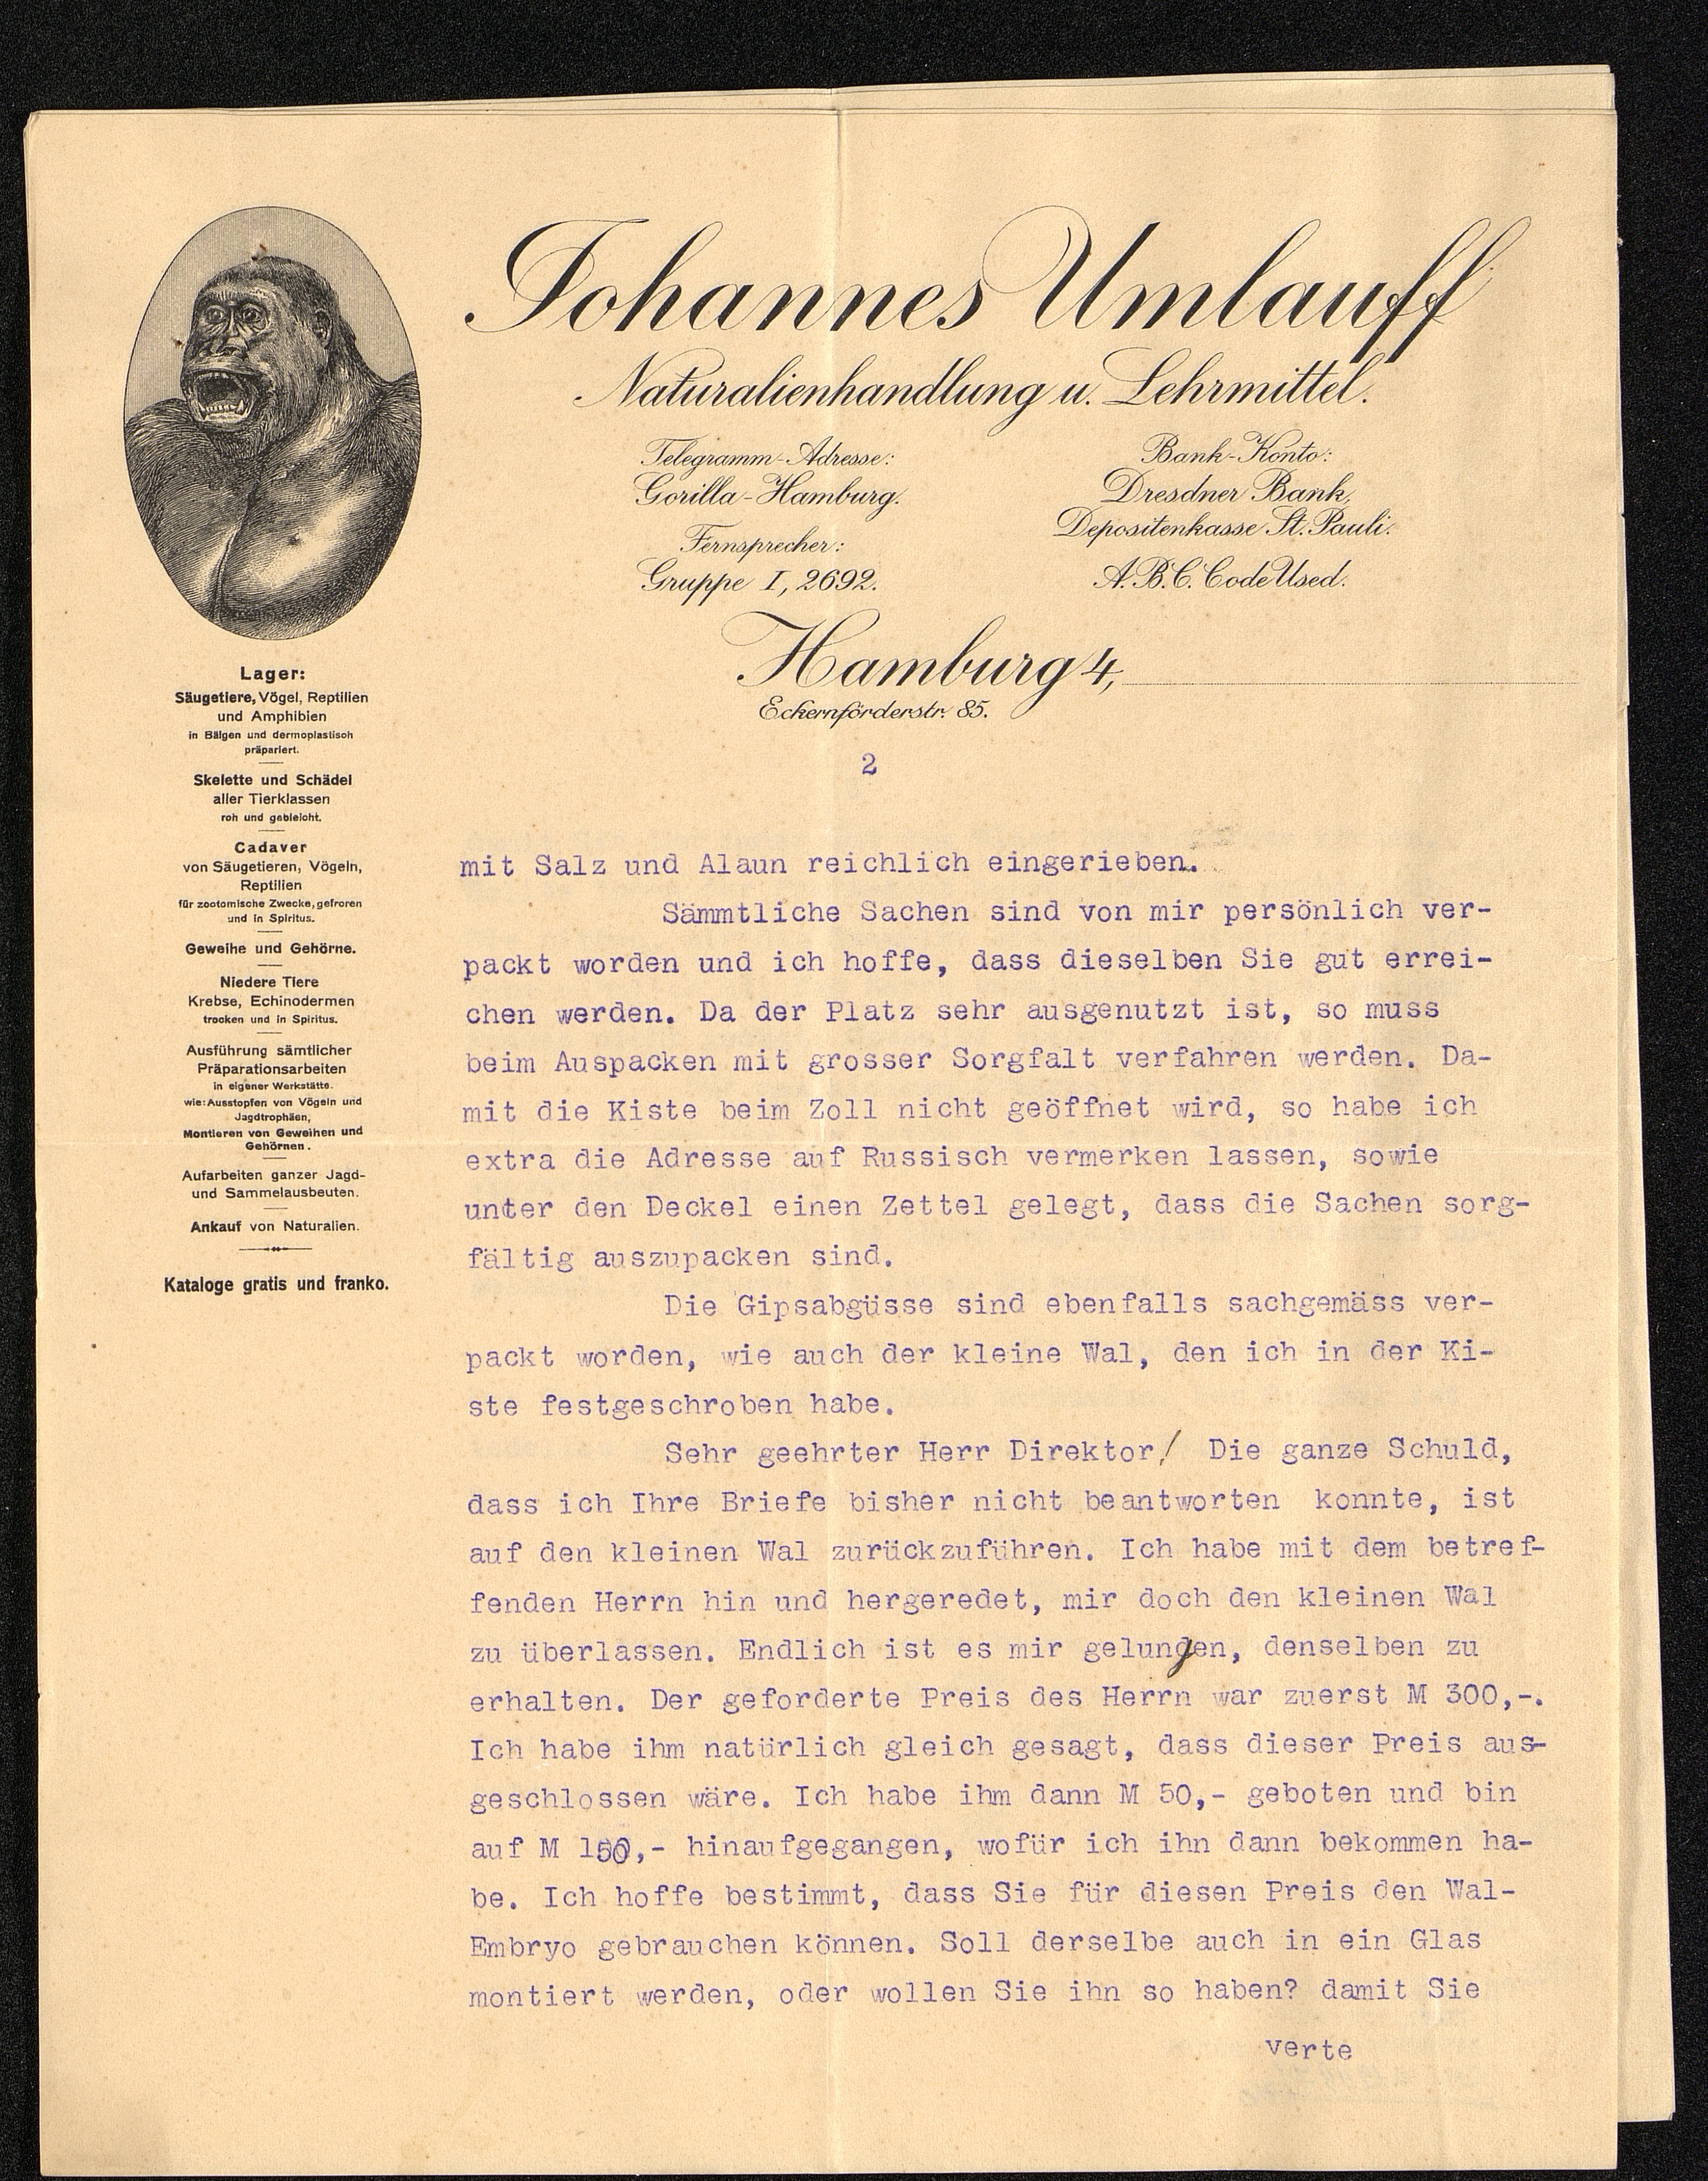 Johannes Umlauff
Naturalienhandlung u. Lehrmittel.
Telegramm-Adresse:
Gorilla-Hamburg.
Fernsprecher:
Gruppe I, 2692.
Bank-Konto:
Dresdner Bank,
Depositenkasse St. Pauli.
A.B.C. Code Used.
Hamburg 4,
Eckernförderstr. 85.
Lager:
Säugetiere, Vögel, Reptilien
und Amphibien
in Bälgen und dermoplastisch
präpariert.
Skelette und Schädel
aller Tierklassen
roh und gebleicht.
Cadaver
von Säugetieren, Vögeln,
Reptilien
für zootomische Zwecke, gefroren
und in Spiritus.
Geweihe und Gehörne.
Niedere Tiere
Krebse, Echinodermen
trocken und in Spiritus.
Ausführung sämtlicher
Präparationsarbeiten
in eigener Werkstätte.
wie: Ausstopfen von Vögeln und
Jagdtrophäen,
Montieren von Geweihen und
Gehörnen.
Aufarbeiten ganzer Jagd-
und Sammelausbeuten.
Ankauf von Naturalien.
Kataloge gratis und franko.
2
mit Salz und Alaun reichlich eingerieben.
Sämmtliche Sachen sind von mir persönlich ver-
packt worden und ich hoffe, dass dieselben Sie gut errei-
chen werden. Da der Platz sehr ausgenutzt ist, so muss
beim Auspacken mit grosser Sorgfalt verfahren werden. Da-
mit die Kiste beim Zoll nicht geöffnet wird, so habe ich
extra die Adresse auf Russisch vermerken lassen, sowie
unter den Deckel einen Zettel gelegt, dass die Sachen sorg-
fältig auszupacken sind.
Die Gipsabgüsse sind ebenfalls sachgemäss ver-
packt worden, wie auch der kleine Wal, den ich in der Ki-
ste festgeschroben habe.
Sehr geehrter Herr Direktor! Die ganze Schuld,
dass ich Ihre Briefe bisher nicht beantworten konnte, ist
auf den kleinen Wal zurückzuführen. Ich habe mit dem betref-
fenden Herrn hin und hergeredet, mir doch den kleinen Wal
zu überlassen. Endlich ist es mir gelungen, denselben zu
erhalten. Der geforderte Preis des Herrn war zuerst M 300,-.
Ich habe ihm natürlich gleich gesagt, dass dieser Preis aus-
geschlossen wäre. Ich habe ihm dann M 50,- geboten und bin
auf M 150,- hinaufgegangen, wofür ich ihn dann bekommen ha-
be. Ich hoffe bestimmt, dass Sie für diesen Preis den Wal-
Embryo gebrauchen können. Soll derselbe auch in ein Glas
montiert werden, oder wollen Sie ihn so haben? damit Sie
verte